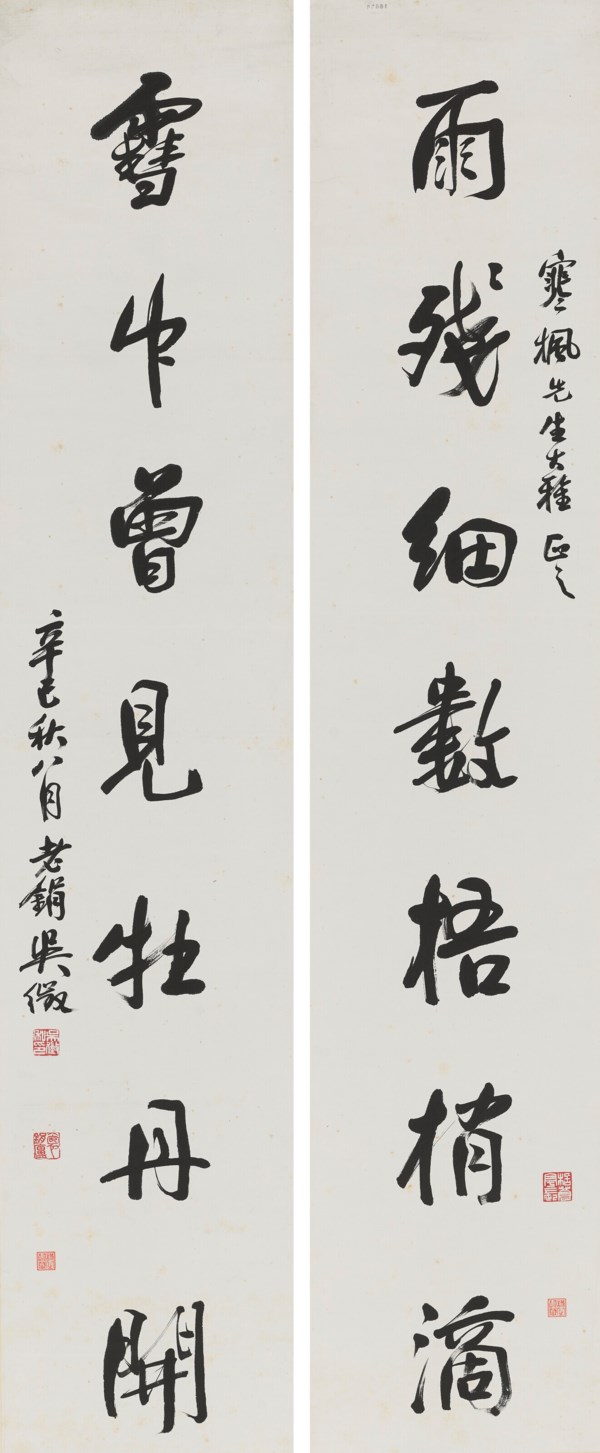 寒楓先生大雅正之
雨殘細數梧梢滴
雪中曾見牡丹開
辛巳秋八月老鋗吳徵